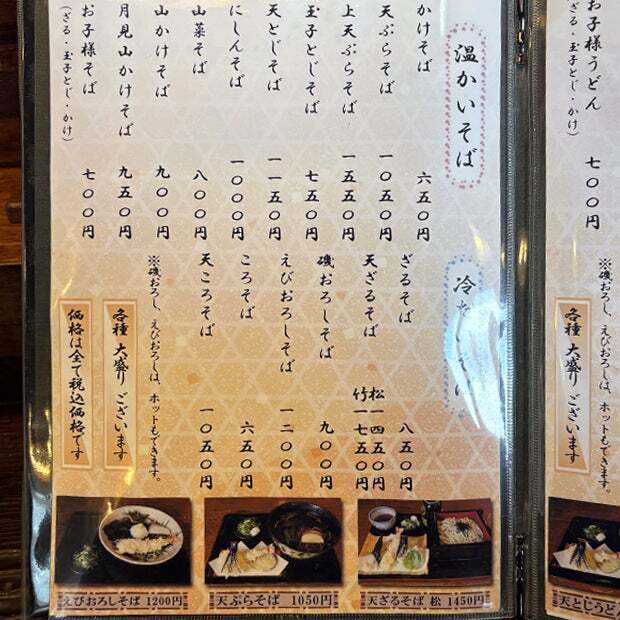 お子様うどん 七〇〇円
(ざる・玉子とじ・かけ)
※磯おろし、えびおろしは、ホットもできます。
各種 大盛り ございます
天とじうど
温かいそば
かけそば 六五〇円
天ぷらそば 一〇五〇円
上天ぷらそば 一五五〇円
玉子とじそば 七五〇円
天とじそば 一一五〇円
にしんそば 一〇〇〇円
山菜そば 八〇〇円
山かけそば 九〇〇円
月見山かけそば 九五〇円
お子様そば 七〇〇円
(ざる・玉子とじ・かけ)
冷たいそば
ざるそば 八五〇円
天ざるそば 松一四五〇円
竹一七五〇円
磯おろしそば 九〇〇円
えびおろしそば 一二〇〇円
ころそば 六五〇円
天ころそば 一〇五〇円
※磯おろし、えびおろしは、ホットもできます。
各種 大盛り ございます
価格は全て税込価格です
えびおろしそば 1200円
天ぷらそば 1050円
天ざるそば 松 1450円